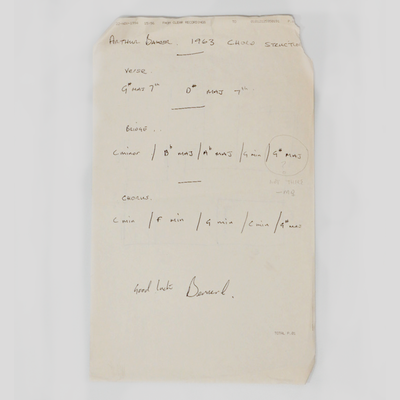 1963 CHORD STRUCTURE
VERSE
G# MAJ 7th D# MAJ 7th
BRIDGE..
C minor / Bb MAJ / Ab MAJ / G min / G# MAJ
CHORUS.
C min / F min / G min / C min / G# MAJ
Good Luck Bernard.